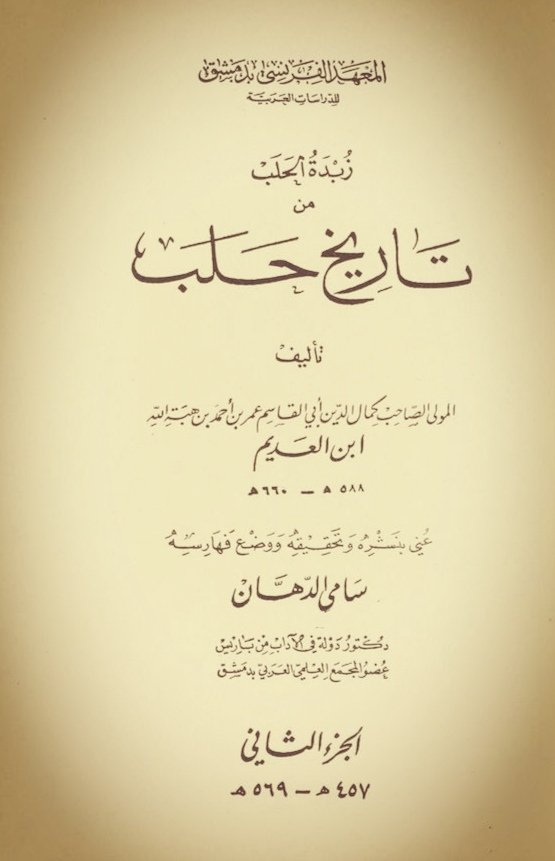 المعهد الفرنسي بدمشق
للدراسات العربية
زُبْدَةُ الحَلَبْ
من
تَاريخ حَلَب
تأليف
المولى الصّاحب كمال الدّين أبي القاسم عمر بن أحمد بن هبة الله
ابن العَديم
٥٨٨ هـ – ٦٦٠ هـ
عُني بنَشْرِهِ وَتحَقِيْقِهِ وَوَضْعِ فَهَارِسِهْ
سَامي الدّهَّانْ
دكتور دَولة في الآدَاب مِن بَاريسْ
عضو المجمَع العِلمي العَربي بدمَشِق
الجزء الثاني
٤٥٧ هـ – ٥٦٩ هـ